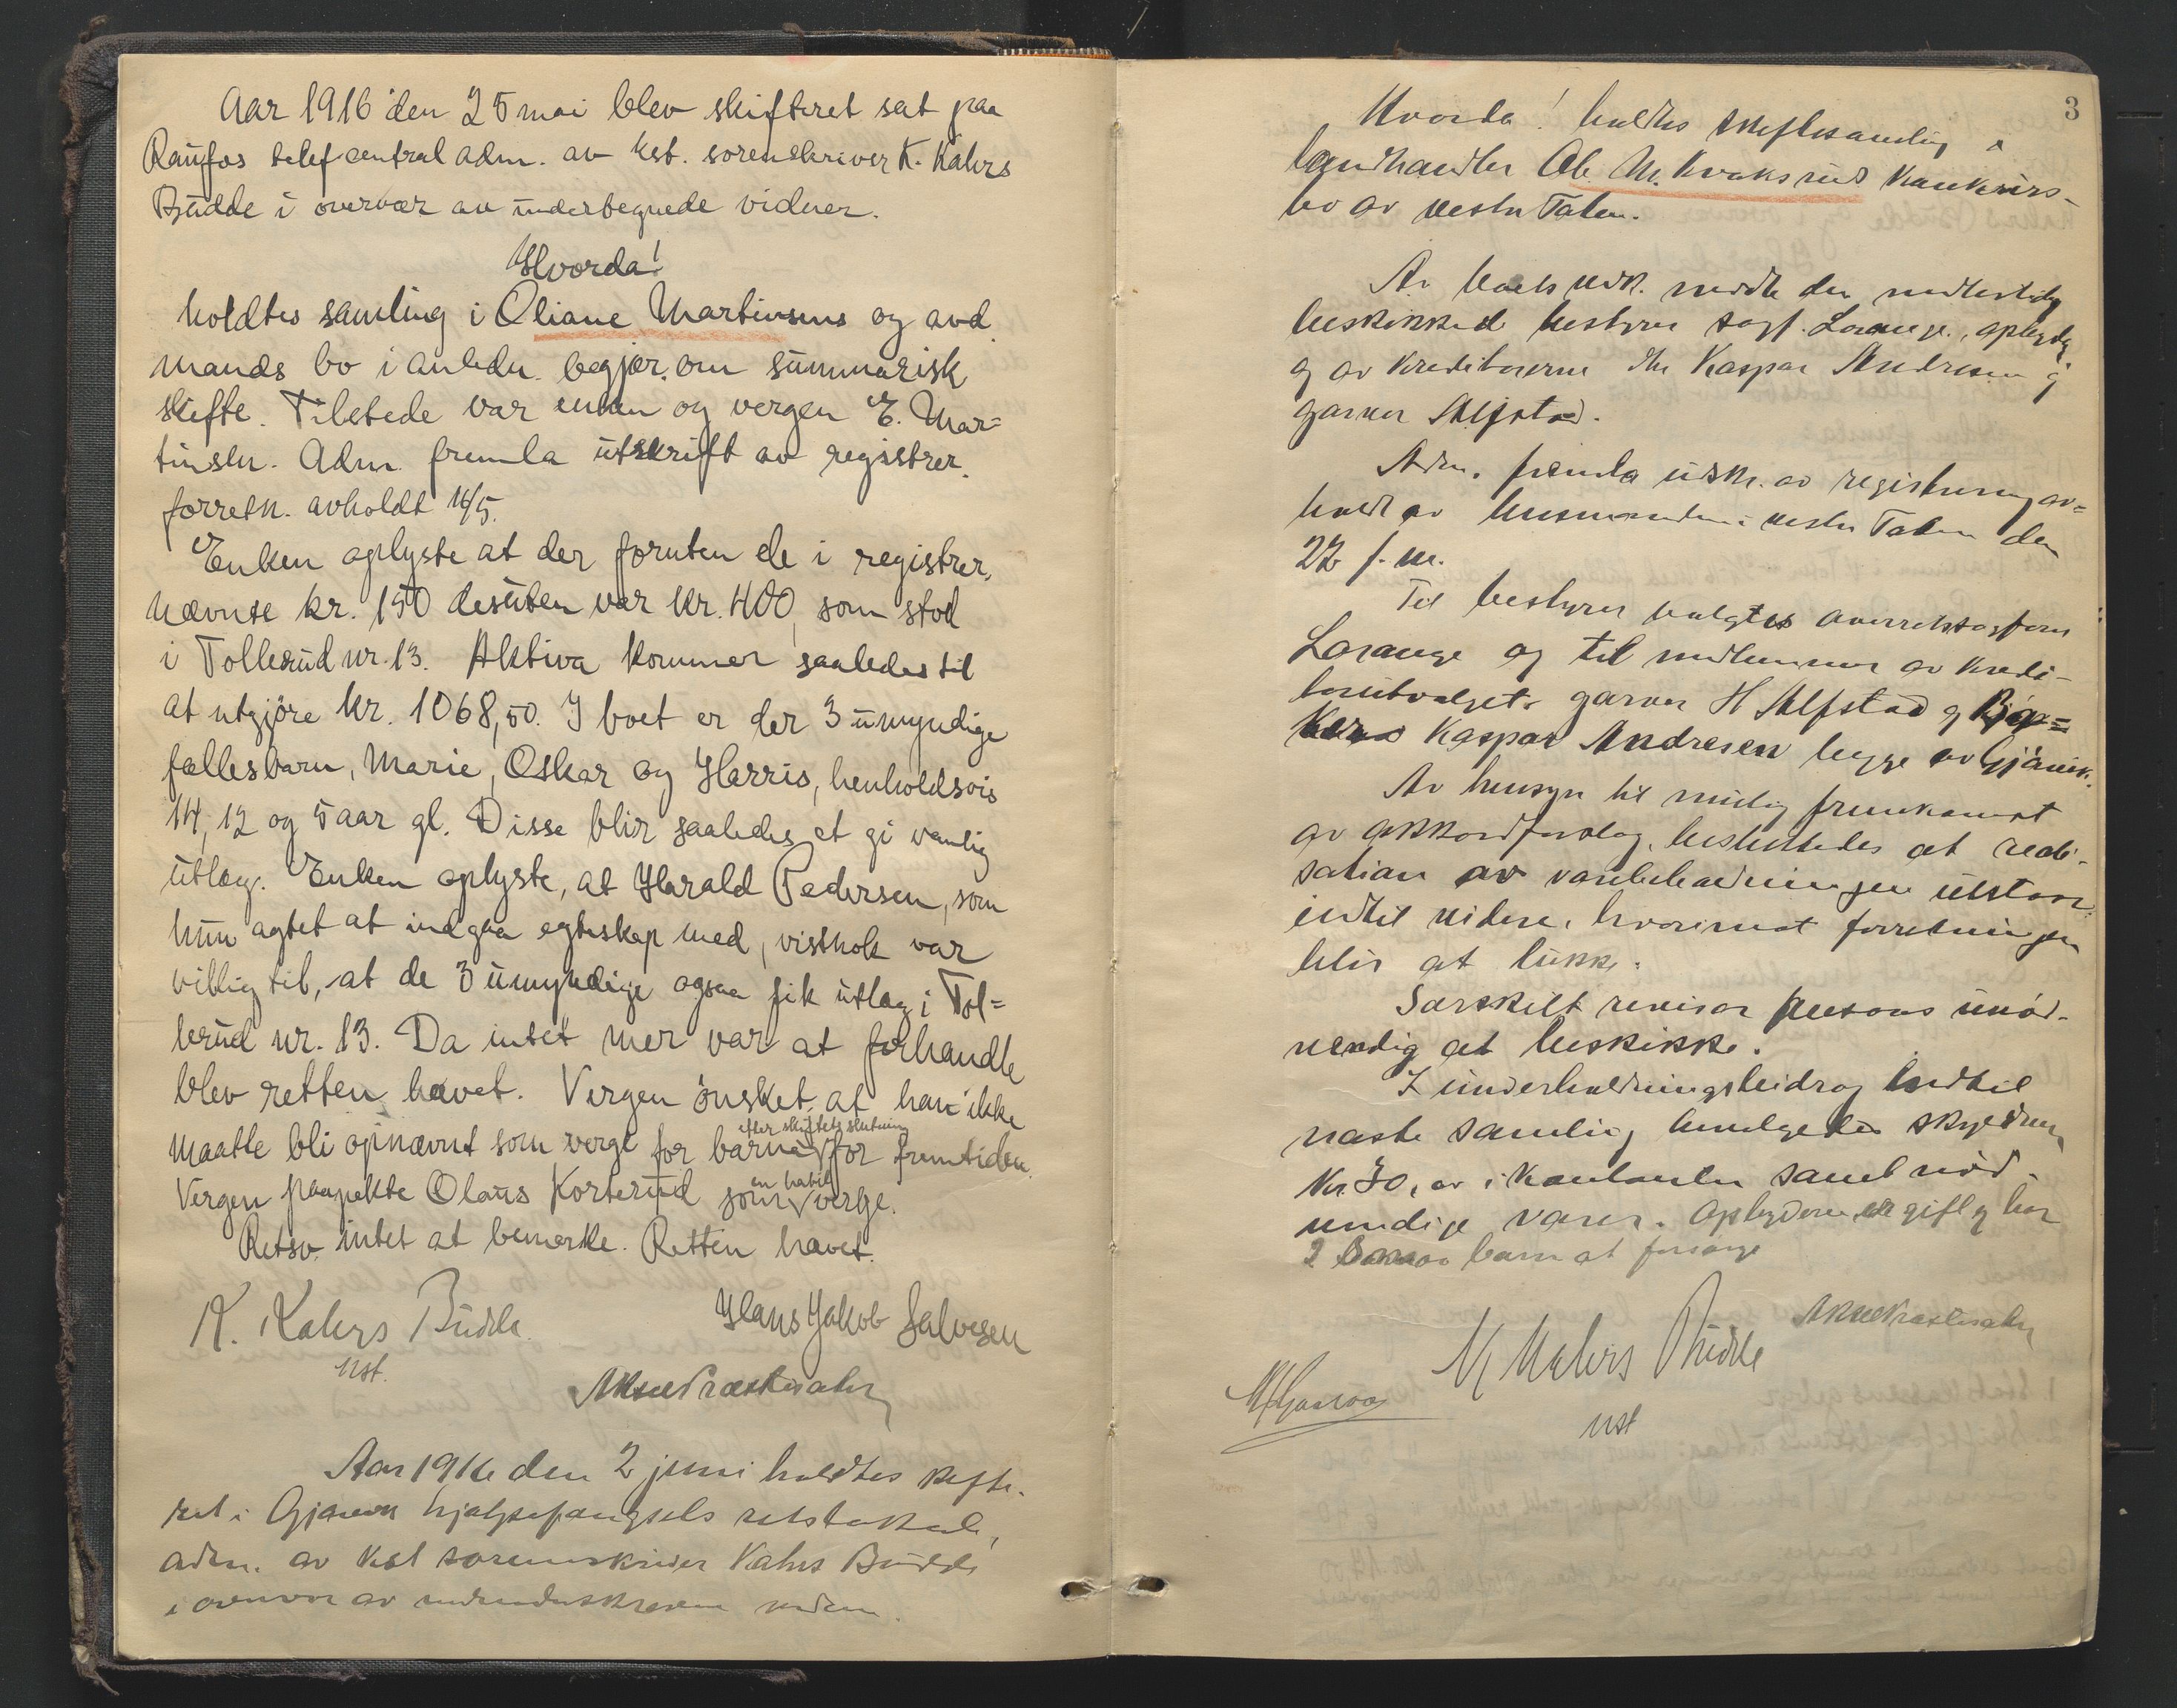 Aar 1916 den 25 mai blev skifteret sat paa
Raufos telefcentral adm. av kst. sorenskriver K. Kahrs
Budde i overvær av underbegnede vidner.
Hvorda!
holdtes samling i Oliane Martinsens og avd.
mands bo i anledn. begjær. om summarisk
skifte. Tilstede var enken og vergen E. Mar=
tinsen. Adm. fremla utskrift av registrer.
forretn. avholdt 16/5.
Enken oplyste at der foruten de i registrer.
nævnte kr. 150 desuten var kr. 400, som stod
i Tollerud nr. 13. Aktiva kommer saaledes til
at utgjöre kr. 1068,50. I boet er der 3 umyndige
fællesbarn, Marie, Oskar og Harris, henholdsvis
14, 12 og 5 aar gl. Disse blir saaledes at gi vanlig
utlæg. Enken oplyste, at Harald Pedersen, som
hun agtet at indgaa egteskap med, visthok var
villig til, at de 3 umyndige ogsaa fik utlæg i Tol=
lerud nr. 13. Da intet mer var at forhandle
blev retten hævet. Vergen ønsket, at han ikke
efter skiftets slutning
maatte bli opnævnt som verge for barna for fremtiden.
en habil
Vergen paapekte Olaus Korterud som verge.
Retsv. intet at bemerke. Retten hævet.
K. Kahrs Budde Hans Jakob Halvesen
kst.
Aksel Præstesæter
Aar 1916 den 2 juni holdtes skifte.
ret i Gjøvik hjælpefængsels retslokale,
adm. av kst sorenskriver Kahrs Budde
i overvær av vidner.
3
Hvorda! holdtes skiftesamling i
landhandler Ole M. Kvaksrud konkurs-
bo av vestre Toten.
Av boets vedk. mødte den midlertidig
beskikkede bestyrer sagf. Lorange, opbyder
og av kreditorerne Hr Kaspar Andresen og
garver Alfstad.
Adm. fremla utskr. av registrering av=
holdt av lensmanden i vestre Toten den
27 f. m.
Til bestyrer valgtes overretssagfører
Lorange og til medlemmer av kredi-
torutvalget garver H Alfstad og
Kaspar Andresen begge av Gjøvik.
Av hensyn til mulig fremkomst
av akkordforslag, besluttedes at reali-
sation av varebeholdningen utstaar
indtil videre, hvorimot forretningen
blir at lukke.
Særskilt revisor ansaaes unød-
vendig at beskikke.
I underholdningsbidrag indtil
næste samling bevilgedes skyldneren
kr. 30, av i kontanter samt nød-
vendige varer. Opbyderen er gift og har
2 barn at forsørge
K Kahrs Budde Aksel Præstesæter
kst